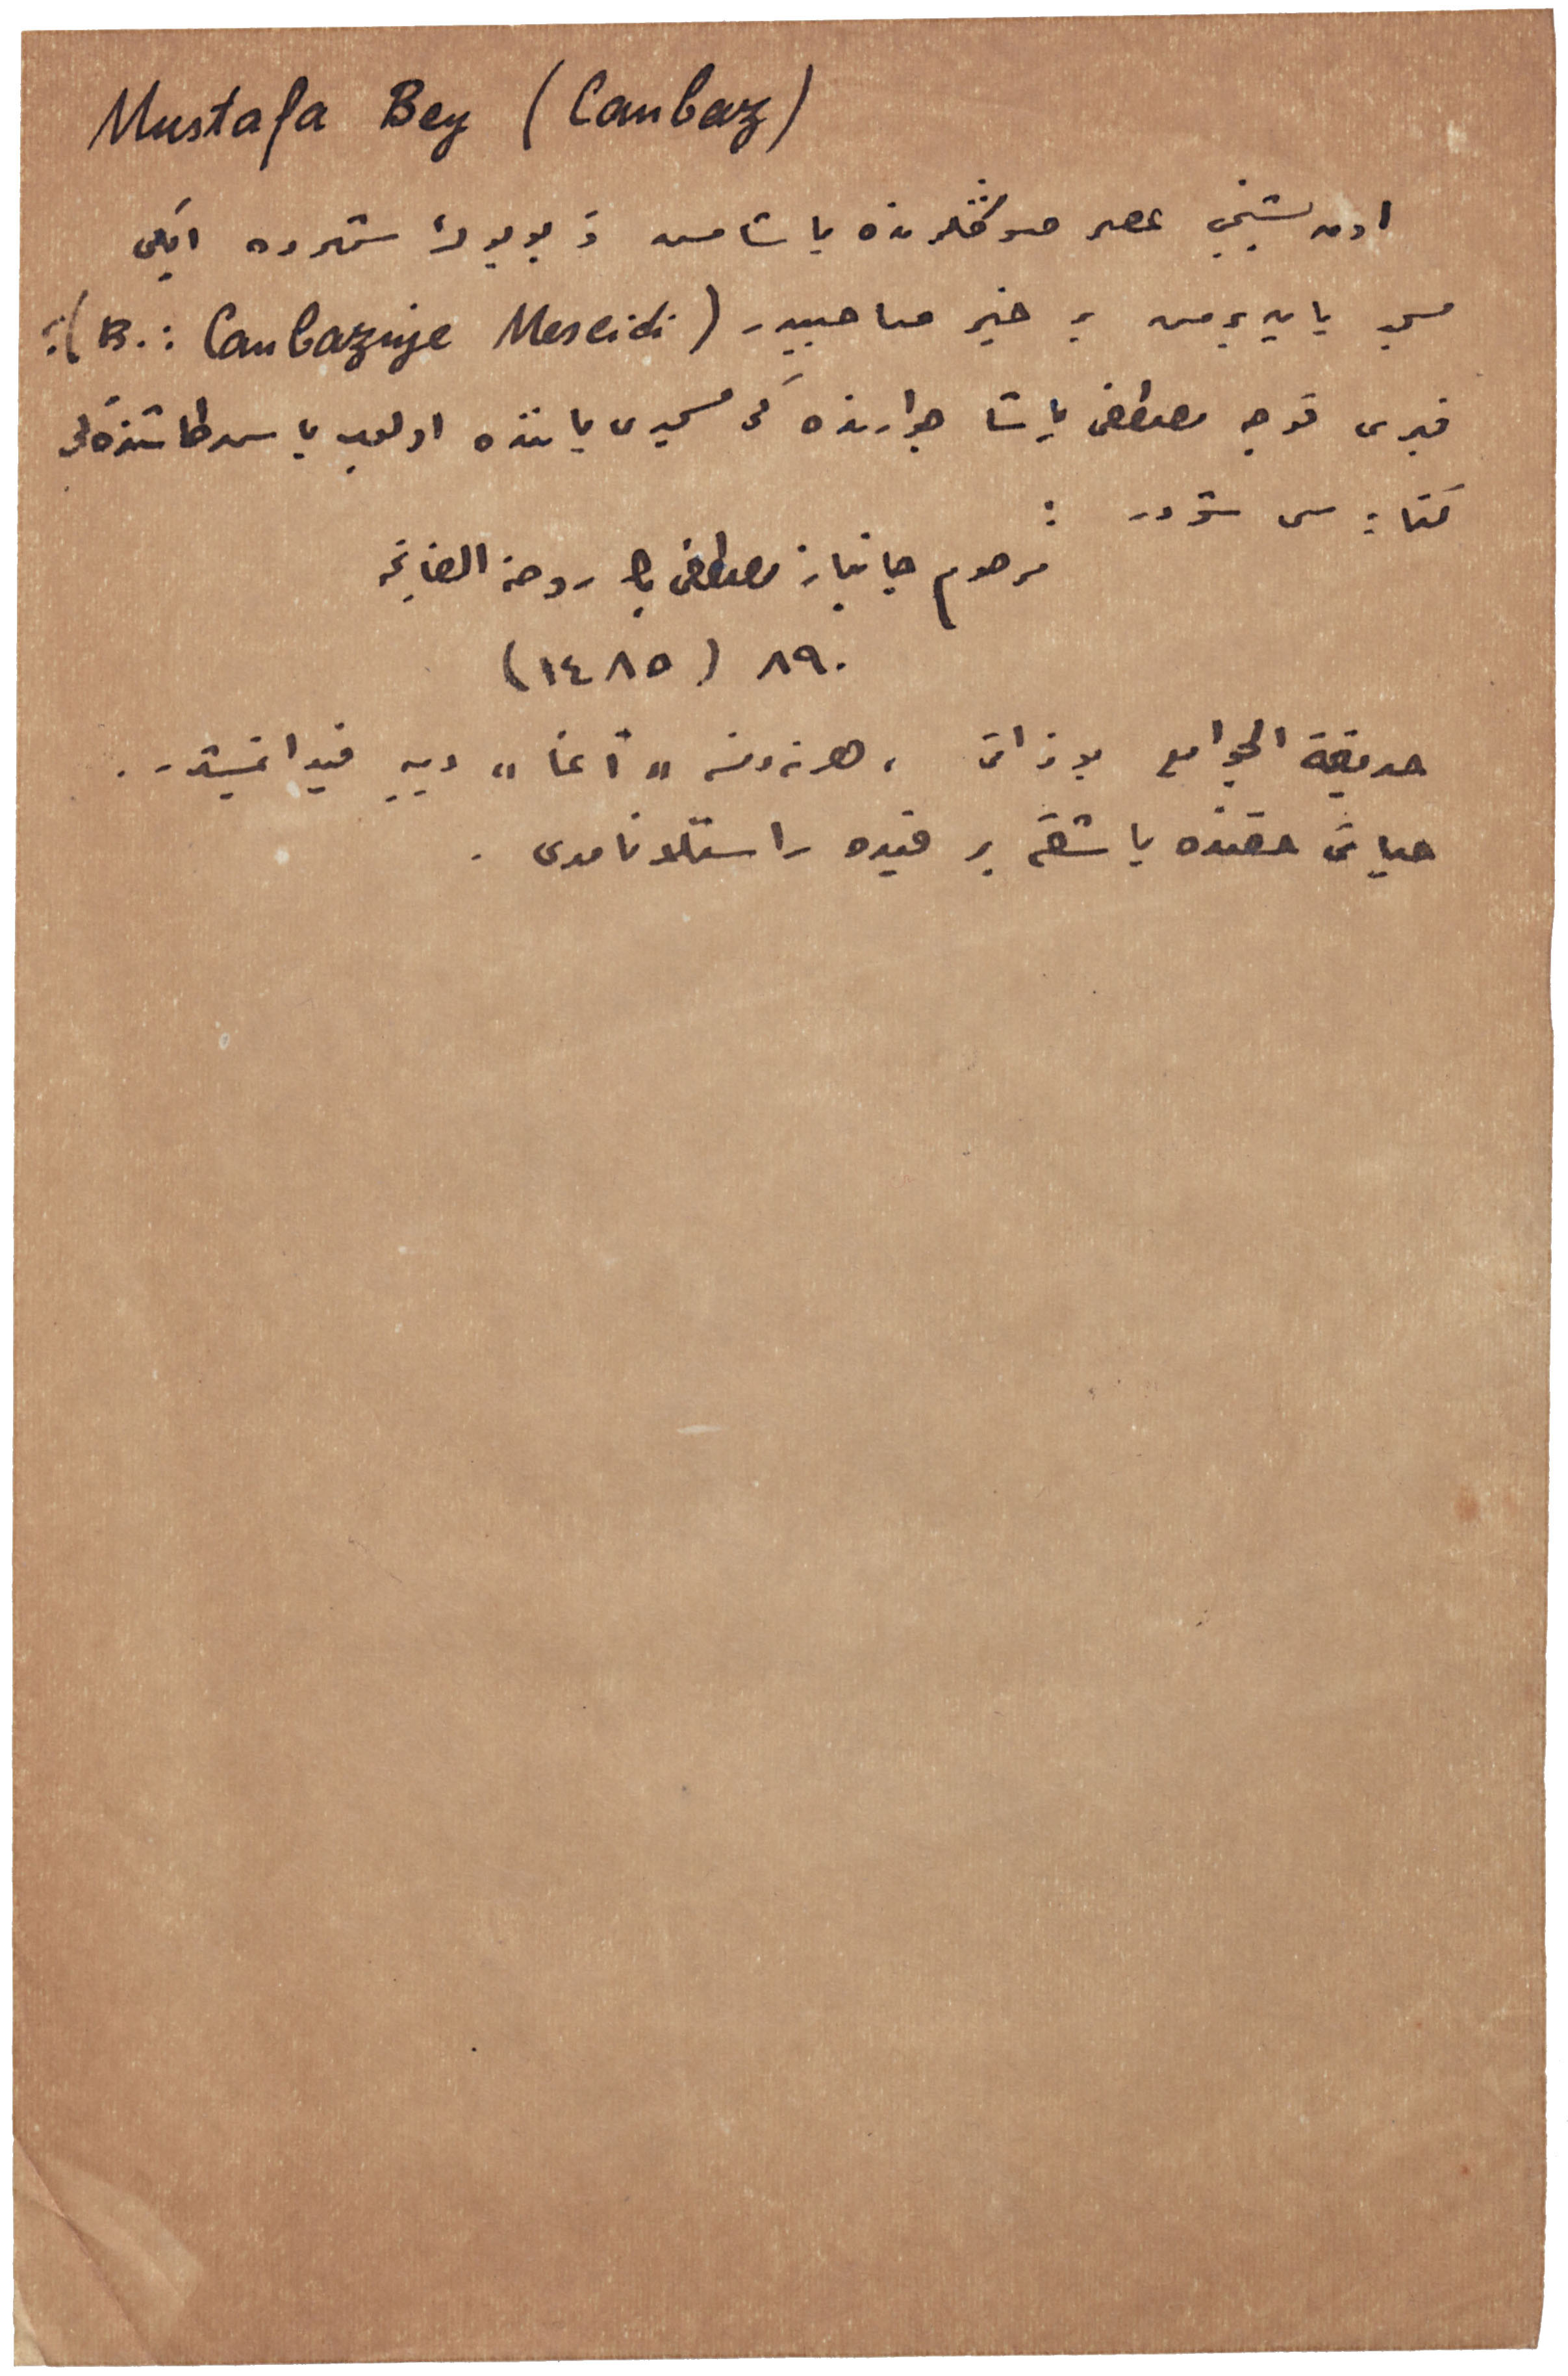 Mustafa Bey (Canbaz)
اون بشنجی عصر صوڭلرنده یاشامش و بو بیوك شهرده ایكی
مسجد یاپدیرمش بر خیر صاحبیدر (B.: Canbaziye Mescidi);
قبری قوجه مصطفی پاشا جوارنده كی مسجدی یاننده اولوب باش طاشنده كی
كتابه سی شودر :
مرحوم جانباز مصطفی بك روحنه الفاتحه
٨٩٠ (١٤٨٥)
حدیقة الجوامع بو ذاتی ، هر نه دنسه « آغا » دیه قید ایتمیشدر .
حیاتی حقنده باشقه بر قیده راستلانامدی .